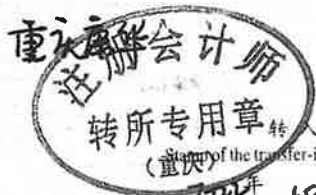 重庆康华
注册会计师
转所专用章
转入
(重庆)
Stamp of the transfer-i
年